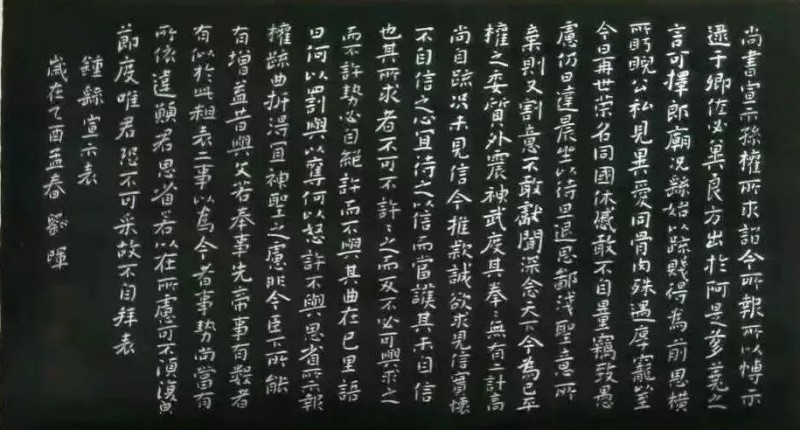 尚書宣示孫權所求詔令所報所以博示
逮于卿佐必冀良方出於阿是芻蕘之
言可擇郎廟況繇始以疏賤得為前恩橫
所盱睨公私見異愛同骨肉殊遇厚寵以至
今日再世榮名同國休慼敢不自量竊致愚
慮仍日達晨坐以待旦退思鄙淺聖意所
棄則又割意不敢獻聞深念天下今為已平
權之委質外震神武度其拳〻無有二計高
尚自疏況未見信今推款誠欲求見信實懷
不自信之心宜待之以信而當護其未自信
也其所求者不可不許〻之而反不必可與求之
而不許勢必自絕許而不與其曲在己里語
曰何以罰與以奪何以怒許不與思省所示報
權疏曲折得宜神聖之慮非今臣下所能
有增益昔與文若奉事先帝事有數者
有似於此粗表二事以為今者事勢尚當有
所依違願君思省若以在所慮可不須復貌
節度唯君恐不可采故不自拜表
鍾繇宣示表
歲在乙酉孟春 劉暉